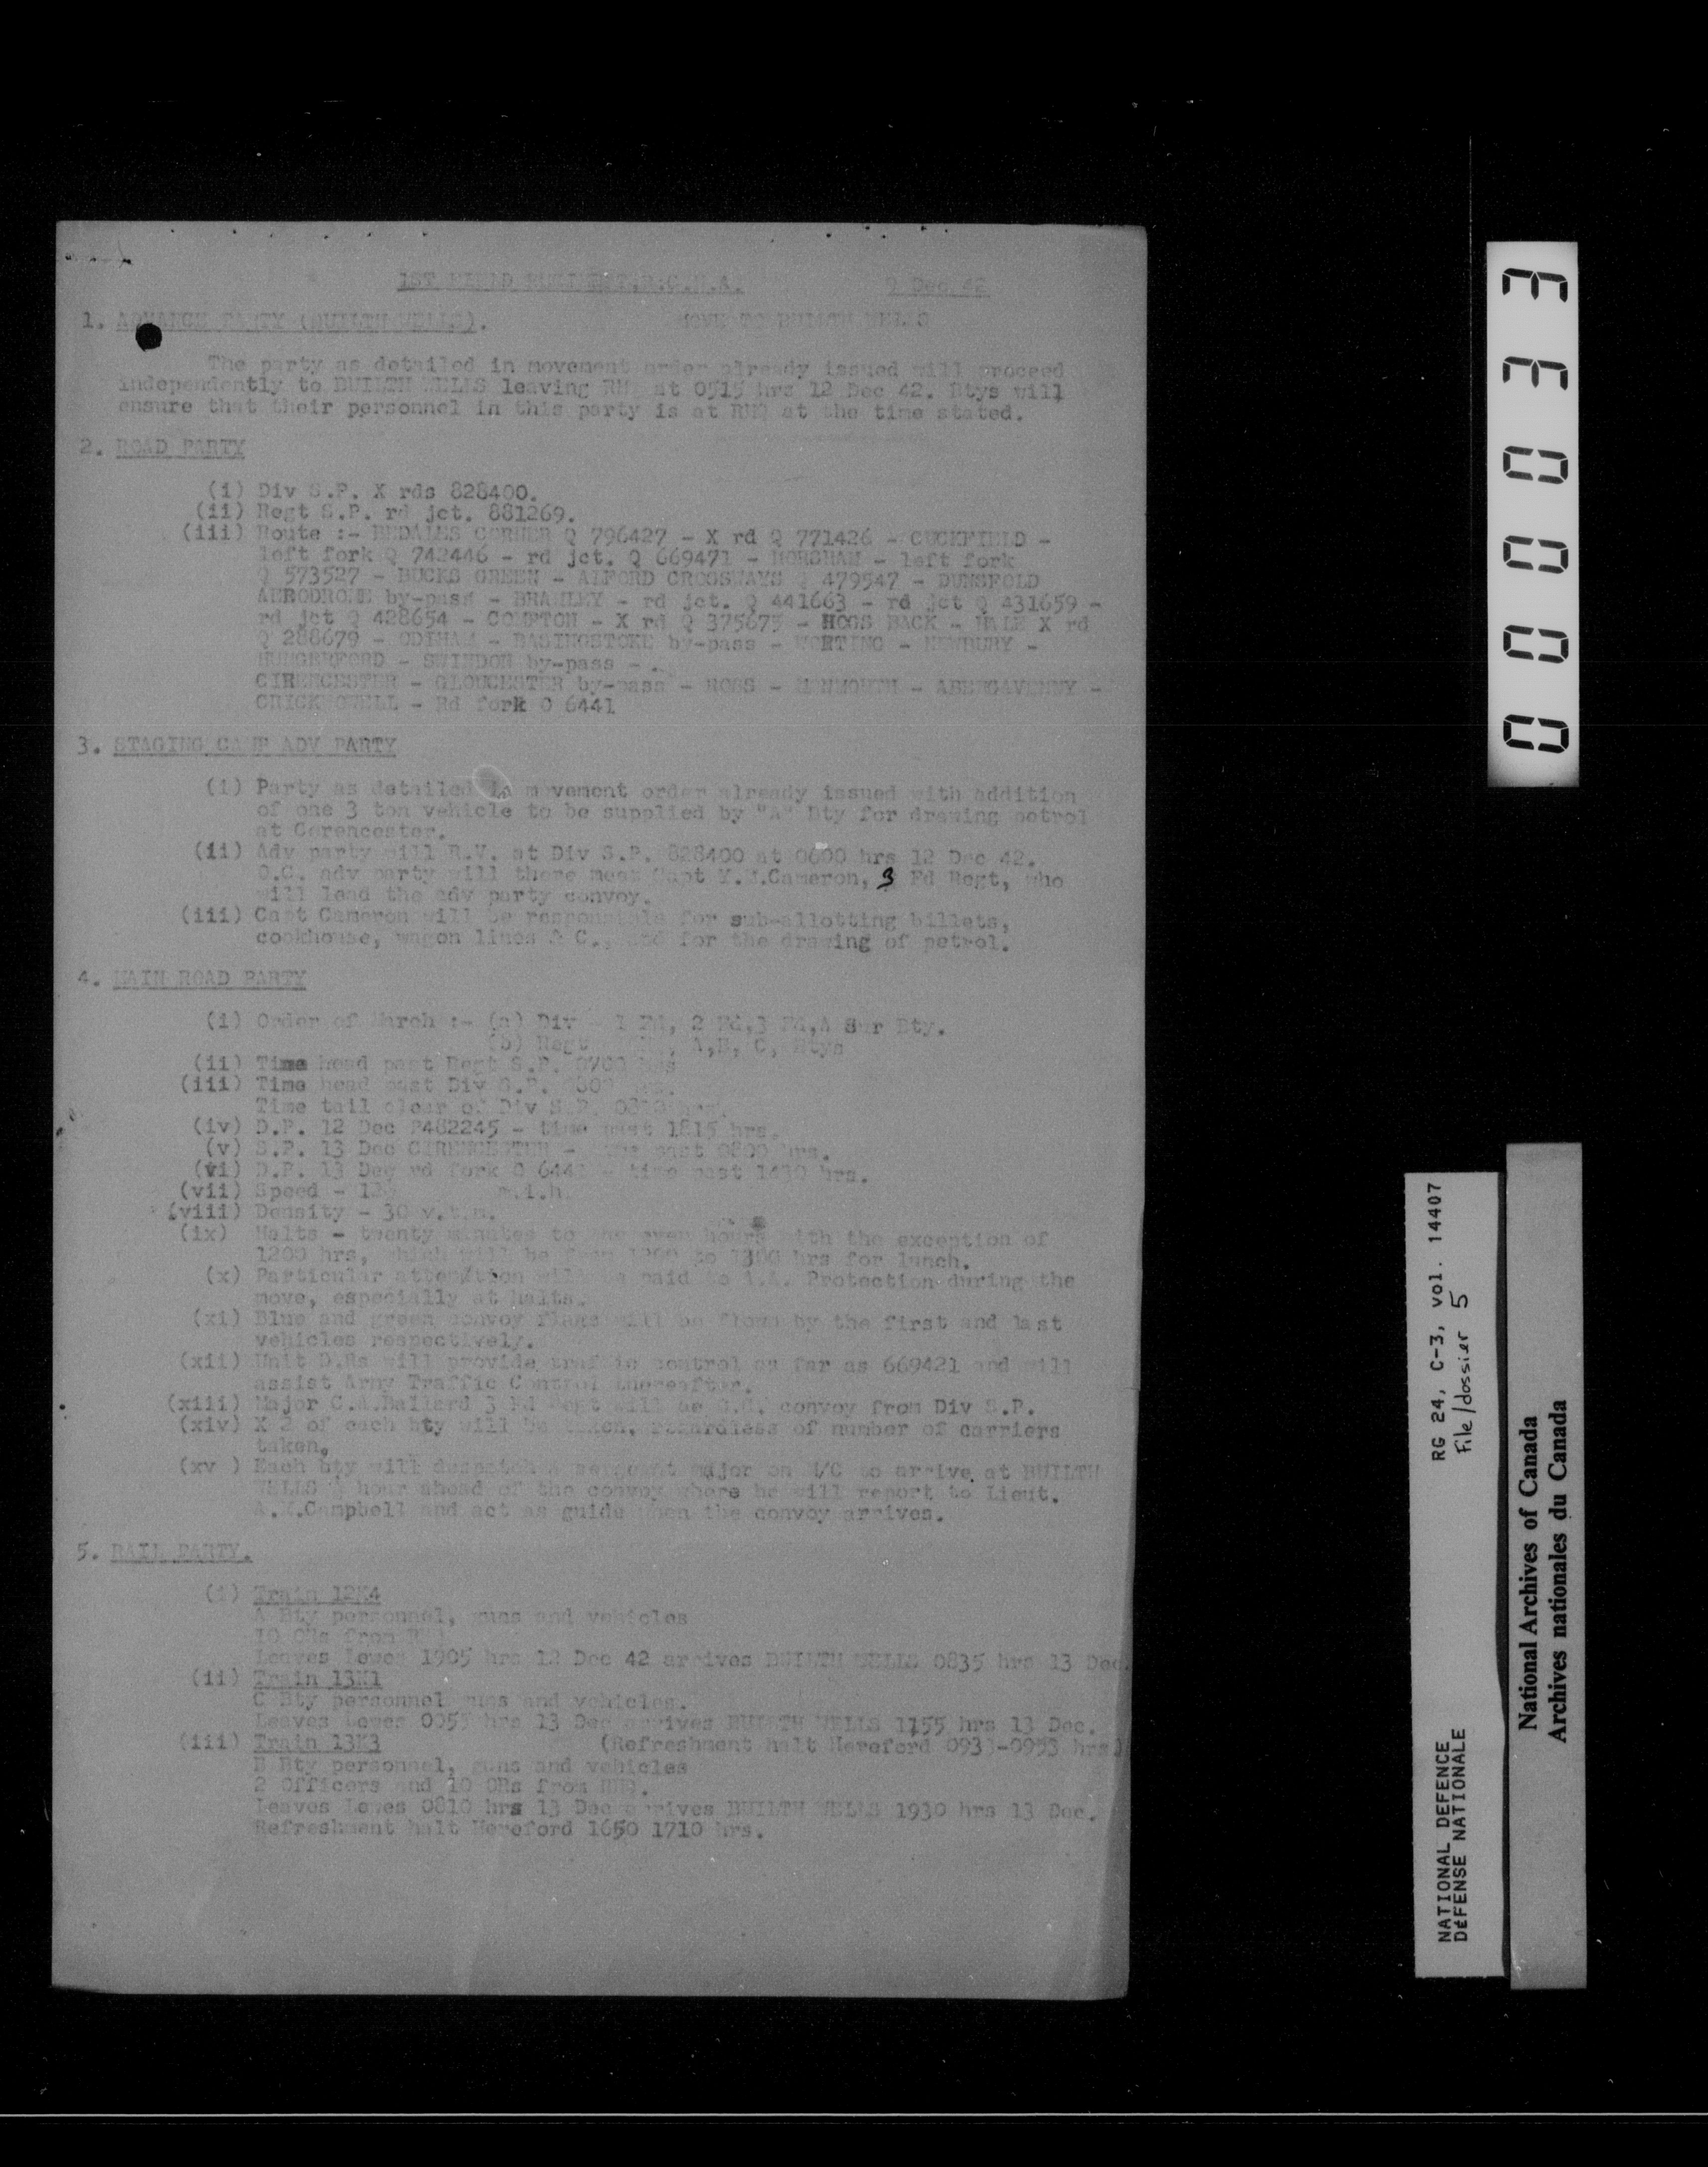 1ST FIELD REGIMENT.R.C.H.A. 9 Dec 42
1. ADVANCE PARTY (BUILTH WELLS). MOVE TO BUILTH WELLS
The party as detailed in movement order already issued will proceed
independently to BUILTH WELLS leaving RHQ at 0515 hrs 12 Dec 42. Btys will
ensure that their personnel in this party is at RHQ at the time stated.
2. ROAD PARTY
(i) Div S.P. X rds 828400.
(ii) Regt S.P. rd jct. 881269.
(iii) Route :- BEDALES CORNER Q 796427 - X rd Q 771426 - CUCKFIELD -
left fork Q 742446 - rd jct. Q 669471 - HORSHAM - left fork
Q 573527 - BUCKS GREEN - ALFORD CROOSWAYS Q 479547 - DUNSFOLD
AERODROME by-pass - BRAMLEY - rd jct. Q 441663 - rd jct Q 431659 -
rd jct Q 428654 - COMPTON - X rd Q 375675 - HOGS BACK - HALE X rd
Q 288679 - ODIHAM - BASINGSTOKE by-pass - WORTING - NEWBURY -
HUNGERFORD - SWINDON by-pass - .
CIRENCESTER - GLOUCESTER by-pass - ROSS - MONMOUTH - ABERGAVENNY -
CRICKHOWELL - Rd fork O 6441
3. STAGING CAMP ADV PARTY
(i) Party as detailed in movement order already issued with addition
of one 3 ton vehicle to be supplied by "A" Bty for drawing petrol
at Cerencester.
(ii) Adv party will R.V. at Div S.P. 828400 at 0600 hrs 12 Dec 42.
O.C. adv party will there meet Capt Cameron, 3 Fd Regt, who
will lead the adv party convoy.
(iii) Capt Cameron will be responsible for sub-allotting billets,
cookhouse, wagon lines & C., and for the drawing of petrol.
4. MAIN ROAD PARTY
(i) Order of March :- (a) Div - 1 Fd, 2 Fd,3 Fd,A Sur Bty.
(b) Regt , A,B, C, Btys
(ii) Time head past Regt S.P. 0700 hrs
(iii) Time head past Div S.P. 0800 hrs.
Time tail clear of Div S.P. hrs.
(iv) D.P. 12 Dec P482245 - time past 1815 hrs.
(v) S.P. 13 Dec CIRENCESTER - time past 0800 hrs.
(vi) D.P. 13 Dec rd fork O 6441 - time past 1430 hrs.
(vii) Speed - m.i.h.
(viii) Density - 30 v.t.m.
(ix) Halts - twenty minutes to the even hours with the exception of
1200 hrs, which will be from 1200 to 1300 hrs for lunch.
(x) Particular attention will be paid to A.A. Protection during the
move, especially at halts.
(xi) Blue and green convoy flags will be flown by the first and last
vehicles respectively.
(xii) Unit D.Rs will provide traffic control as far as 669421 and will
assist Army Traffic Control thereafter.
(xiii) Major C.A.Ballard 3 Fd Regt will be O.C. convoy from Div S.P.
(xiv) X 2 of each bty will be taken, regardless of number of carriers
taken.
(xv ) Each bty will despatch a sergeant major on M/C to arrive at BUILTH
WELLS ½ hour ahead of the convoy where he will report to Lieut.
Campbell and act as guide when the convoy arrives.
5. RAIL PARTY.
(i) Train 12K4
A Bty personnel, guns and vehicles
10 ORs from RHQ
Leaves Lewes 1905 hrs 12 Dec 42 arrives BUILTH WELLS 0835 hrs 13 Dec.
(ii) Train 13K1
C Bty personnel guns and vehicles.
Leaves Lewes 0055 hrs 13 Dec arrives BUILTH WELLS 1155 hrs 13 Dec.
(iii) Train 13K3 (Refreshment halt Hereford 0933-0953 hrs)
B Bty personnel, guns and vehicles
2 Officers and 10 ORs from RHQ.
Leaves Lewes 0810 hrs 13 Dec arrives BUILTH WELLS 1930 hrs 13 Dec.
Refreshment halt Hereford 1650 1710 hrs.
000033
NATIONAL DEFENCE RG 24, C-3, vol. 14407
DÉFENSE NATIONALE File/dossier 5
National Archives of Canada
Archives nationales du Canada